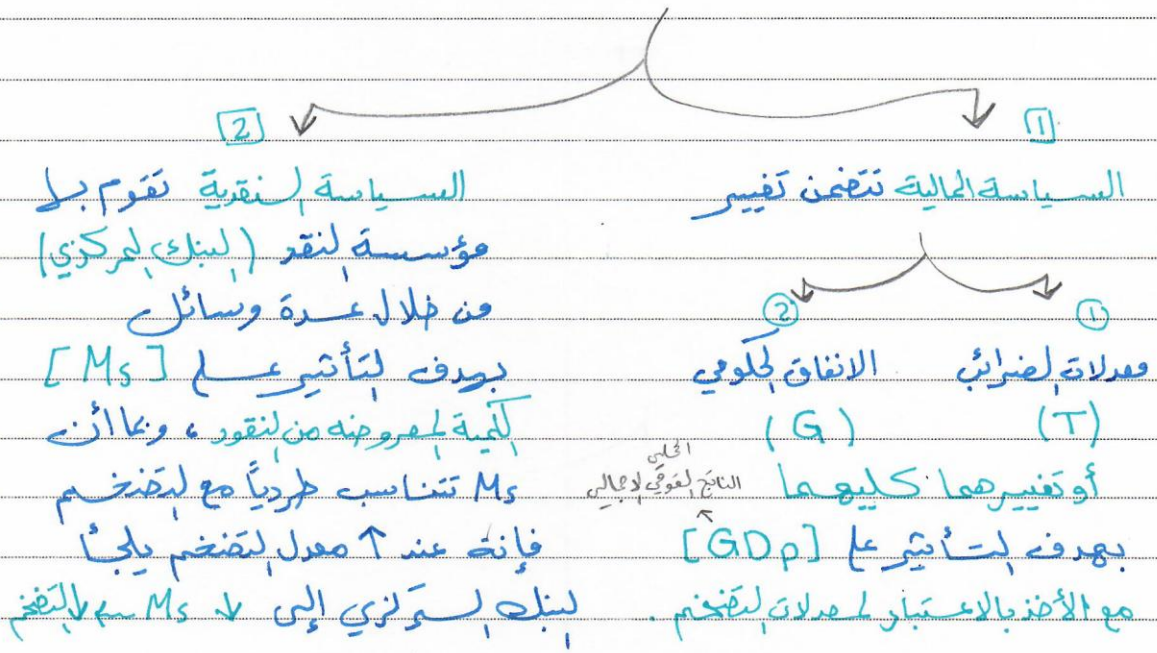 [1]
السياسة المالية تتضمن تغيير
①
معدلات الضرائب
(T)
②
الانفاق الحكومي
(G)
أو تغييرهما كليهما
المحلي
الناتج القومي الاجمالي
بهدف التأثير على [GDP]
مع الأخذ بالاعتبار لمعدلات التضخم.
[2]
السياسة النقدية تقوم بها
مؤسسة النقد (البنك المركزي)
من خلال عدة وسائل
بهدف التأثير على [Ms]
الكمية المعروضة من النقود، وبما أن
Ms تتناسب طردياً مع التضخم
فإنة عند ↑ معدل التضخم يلجأ
البنك المركزي إلى ↓ Ms ↓ التضخم